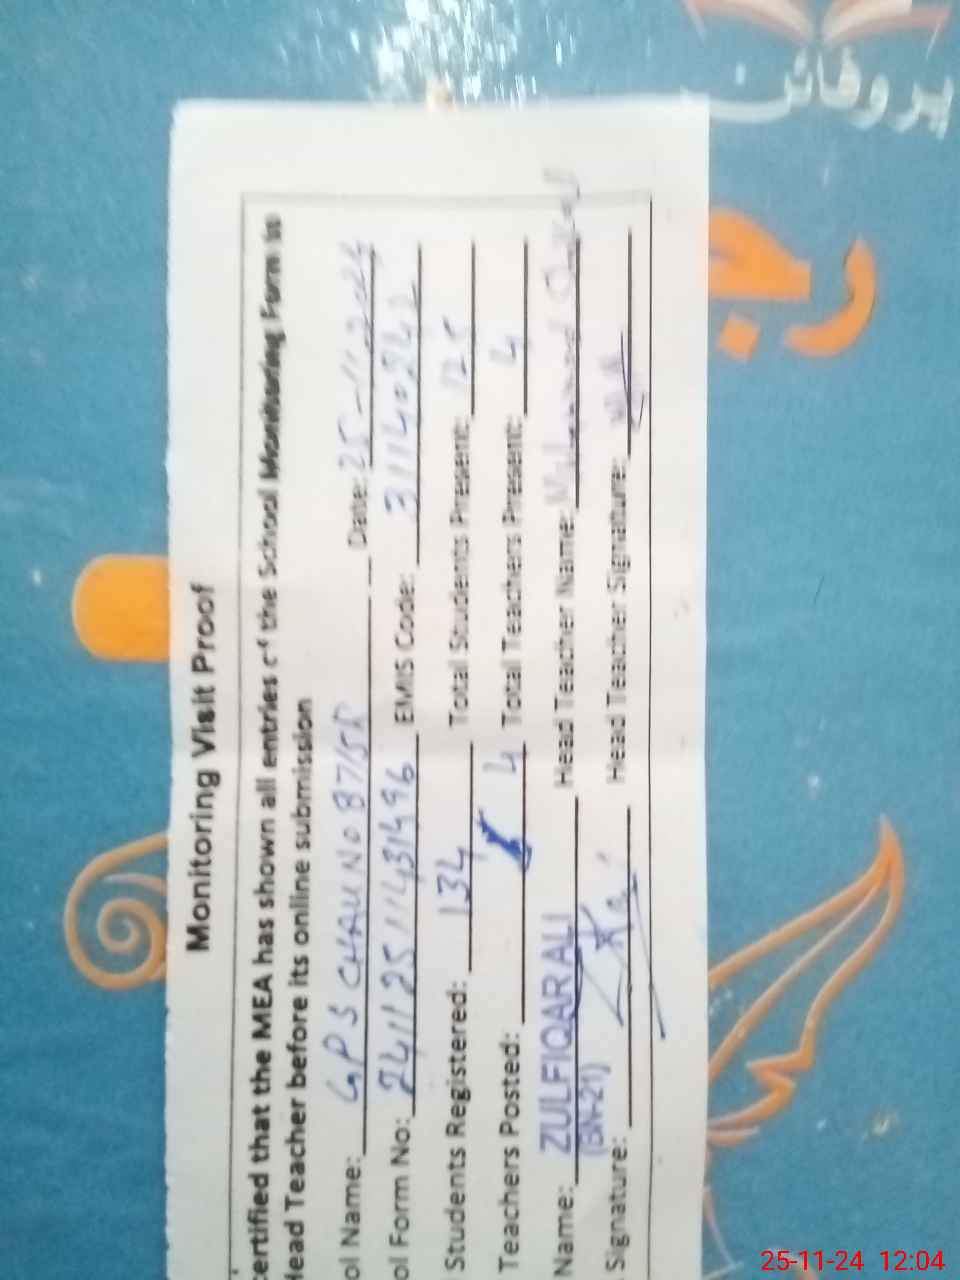 Monitoring Visit Proof
ertified that the MEA has shown all entries of the School Monitoring Form to
Head Teacher before its online submission
ol Name: GPS CHAK NO 87/5R Date: 25-11-2024
ol Form No: EMIS Code: 31140242
Students Registered: 134 Total Students Present: 125
Teachers Posted: 4 Total Teachers Present: 4
Name: ZULFIQAR ALI Head Teacher Name: Muhammad
(BN-21)
Signature: Head Teacher Signature:
25-11-24 12:04